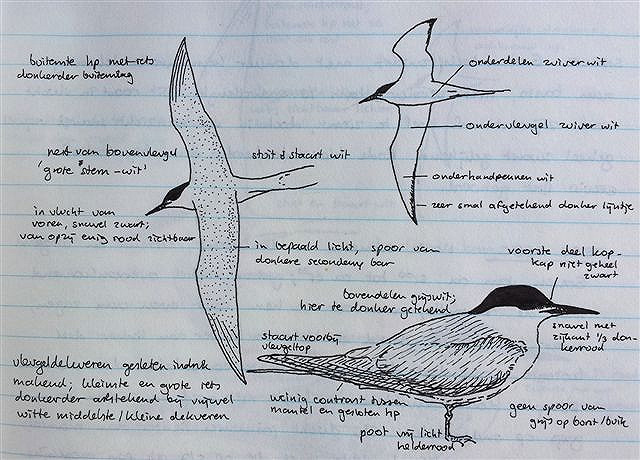 buitenste hp met iets
donkerder buitenvlag
onderdelen zuiver wit
ondervleugel zuiver wit
rest van bovenvleugel
'grote stern-wit'
stuit & staart wit
onderhandpennen wit
zeer smal afgetekend donker lijntje
in vlucht van
voren, snavel zwart;
van opzij enig rood zichtbaar
in bepaald licht, spoor van
donkere secondary bar
voorste deel kop-
kap niet geheel
zwart
bovendelen grijswit;
hier te donker getekend
snavel met
zijkant 1/3 don-
kerrood
staart voorbij
vleugeltop
vleugeldekveren gesleten indruk
makend; kleinste en grote iets
donkerder afstekend bij vrijwel
witte middelste/kleine dekveren
weinig contrast tussen
mantel en gesloten hp
geen spoor van
grijs op borst/buik
poot vrij licht
helderrood